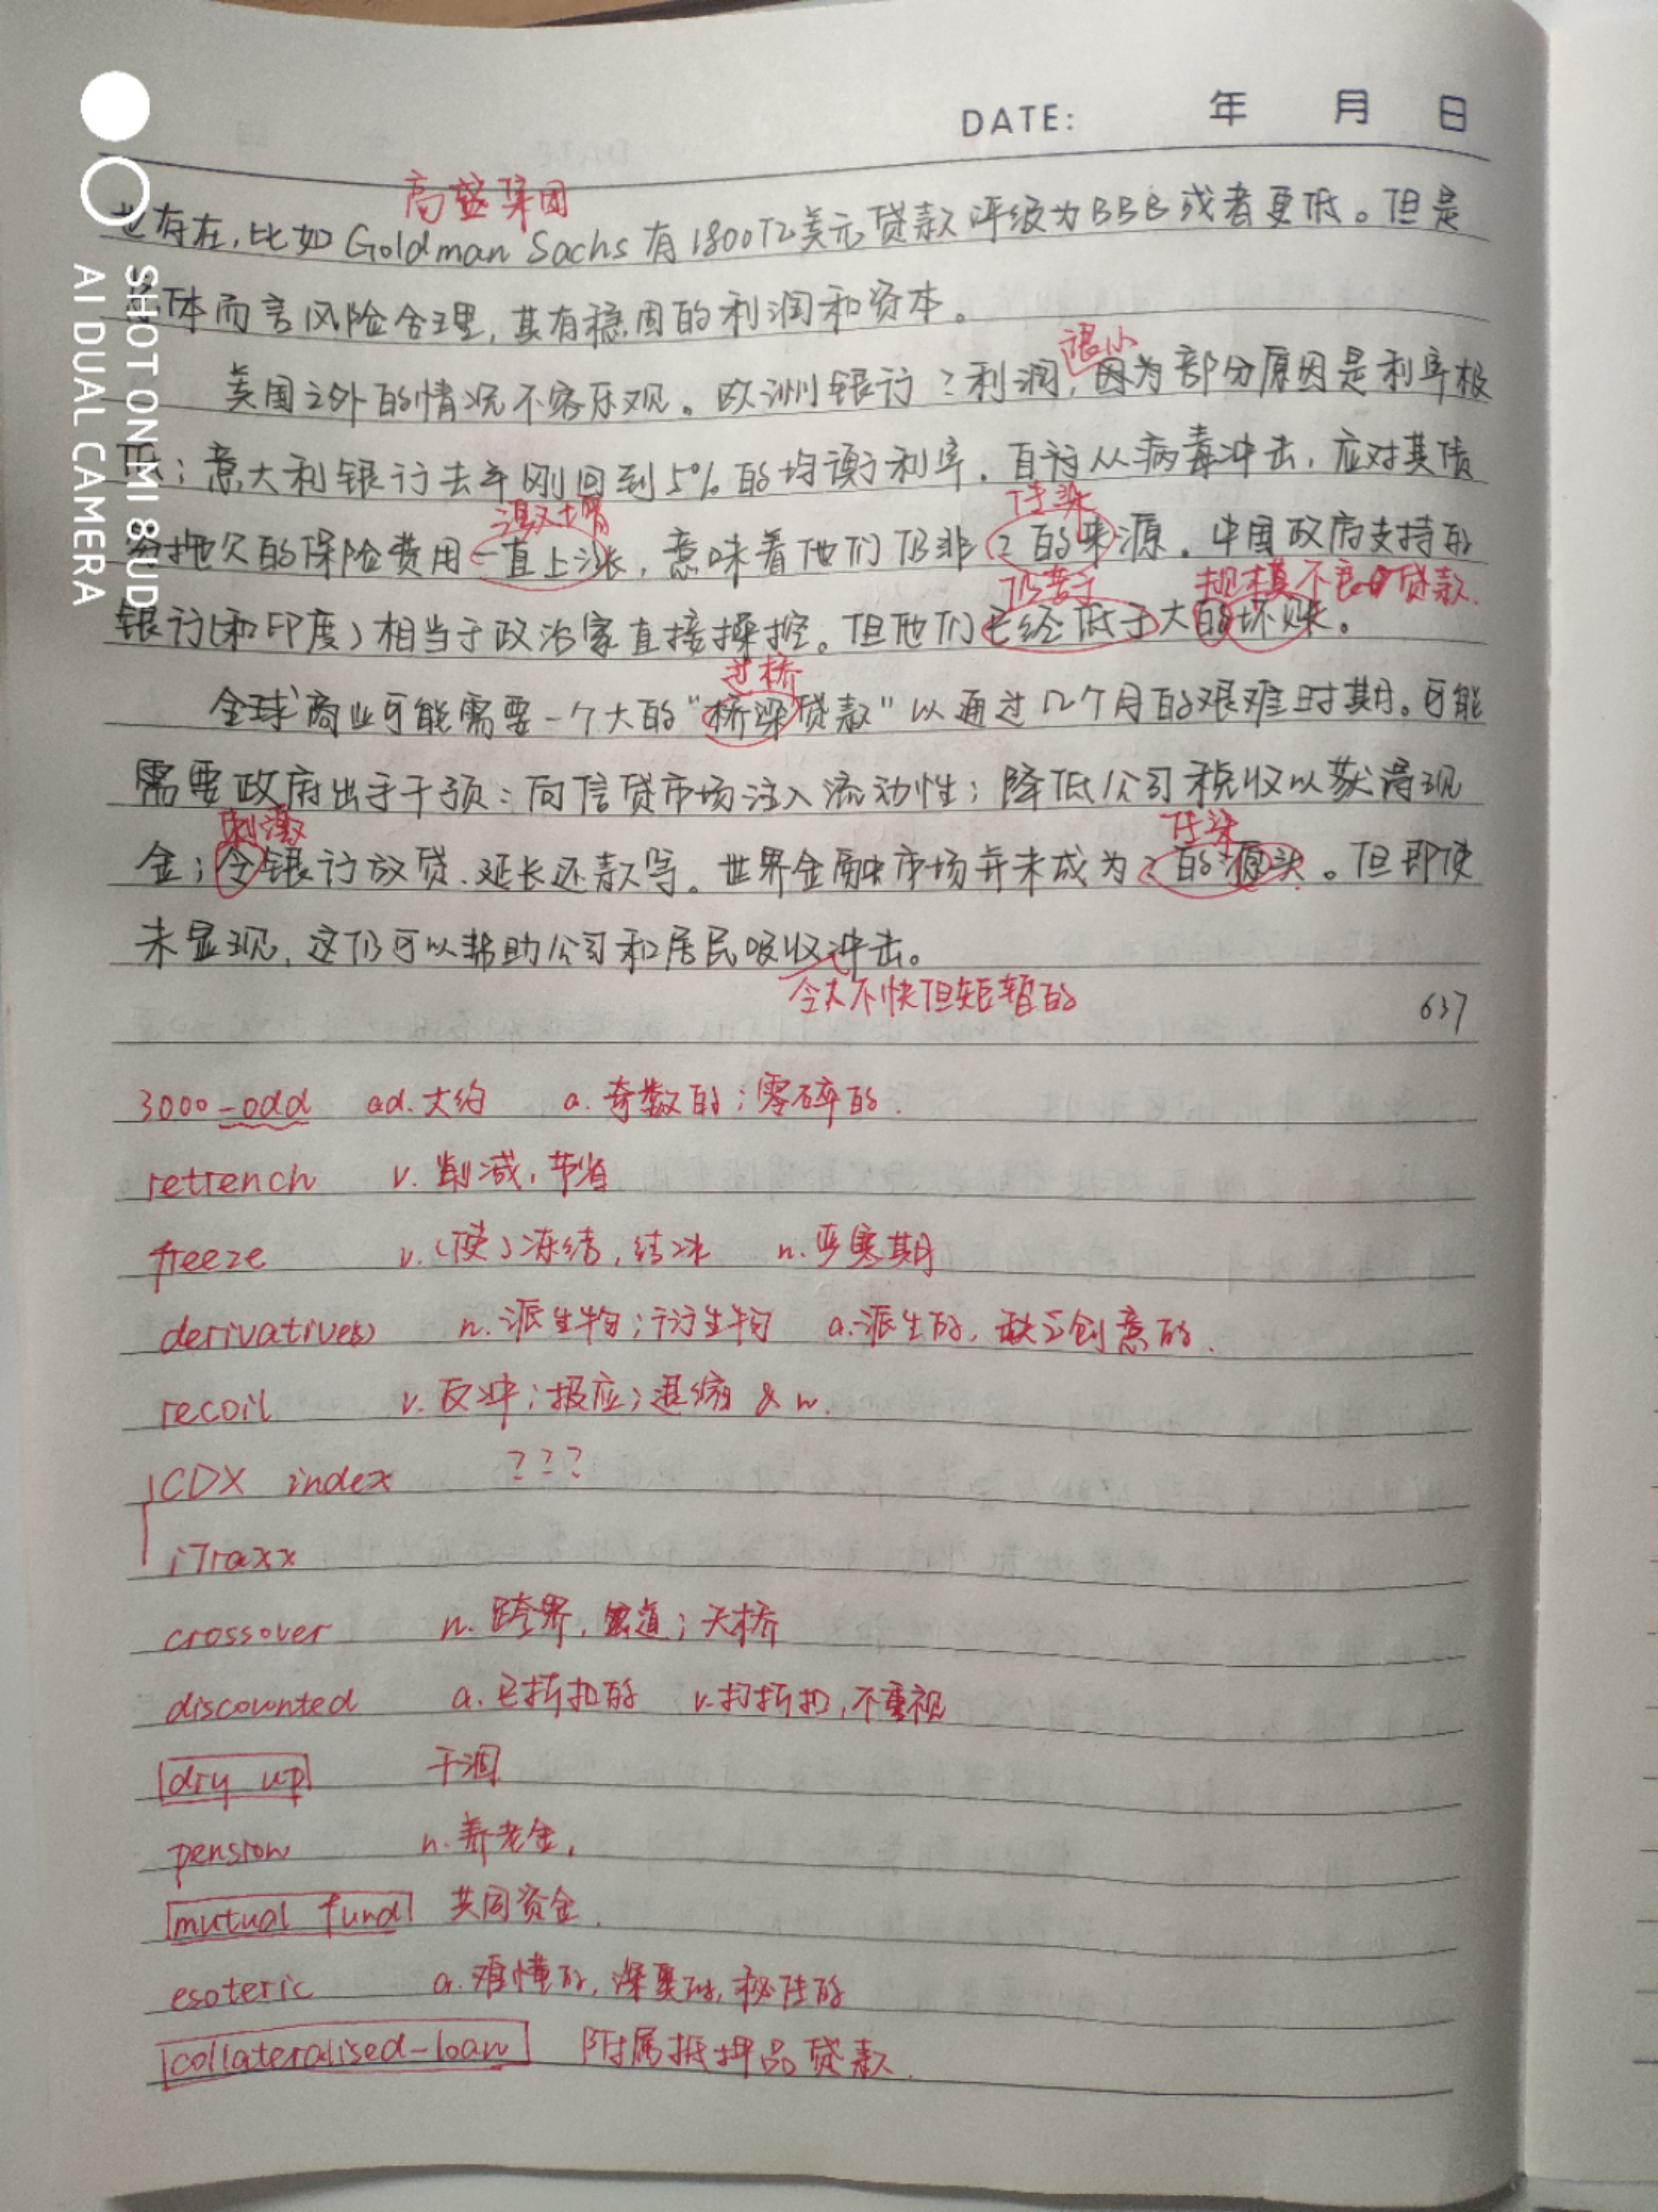 DATE: 年 月 日
高盛集团
也存在,比如Goldman Sachs有1800亿美元贷款评级为BBB或者更低。但是
体而言风险合理,其有稳固的利润和资本。
很小
美国之外的情况不容乐观。欧洲银行?利润,因为部分原因是利率极
低;意大利银行去年刚回到5%的均衡利率。自从病毒冲击,应对其债
激增 传染
拖欠的保险费用一直上涨,意味着他们仍非?的来源。中国政府支持的
仍苦于 规模不良贷款.
银行(和印度)相当于政治家直接操控。但他们已经低于大的坏账。
过桥
全球商业可能需要一个大的“桥梁贷款”以通过12个月的艰难时期。可能
需要政府出手干预:向信贷市场注入流动性;降低公司税收以获得现
刺激 传染
金;令银行放贷、延长还款等。世界金融市场并未成为?的源头。但即使
未显现,这仍可以帮助公司和居民吸收冲击。
令人不快但短暂的
637
3000-odd ad.大约 a.奇数的;零碎的.
retrench v.削减,节省
freeze v.(使)冻结,结冰 n.严寒期
derivative(s) n.派生物;衍生物 a.派生的,缺乏创意的.
recoil v.反冲;报应;退缩 & n.
CDX index ???
iTraxx
crossover n.跨界,渡道;天桥
discounted a.已折扣的 v.打折扣,不重视
dry up 干涸
pension n.养老金,
mutual fund 共同资金.
esoteric a.难懂的,深奥的,秘传的
collateralised-loan 附属抵押品贷款.
SHOT ON MI 8UD
AI DUAL CAMERA